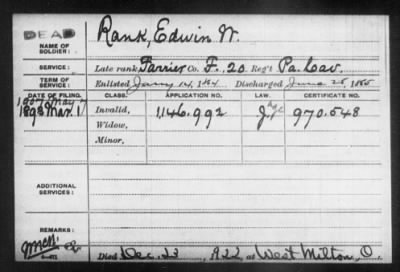 DEAD
NAME OF SOLDIER:
Rank, Edwin W.
SERVICE:
Late rank, Farrier Co. F, 20 Reg't Pa. Cav.
TERM OF SERVICE:
Enlisted Jany 14, 1864 Discharged June 25, 1865
DATE OF FILING. CLASS. APPLICATION NO. LAW. CERTIFICATE NO.
1907 May 7
1893 Mar. 17 Invalid, 1,146.992 970.548
Widow,
Minor,
ADDITIONAL SERVICES:
REMARKS:
Died Dec. 23, 1922, at West Milton, O.